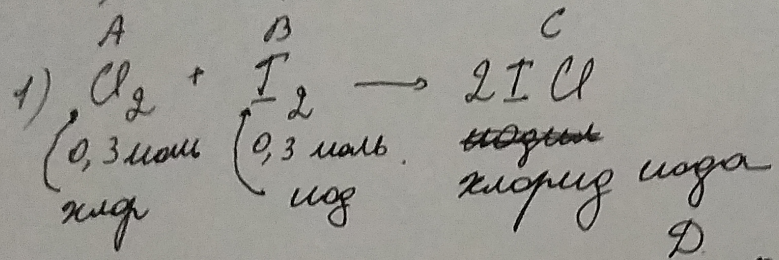 A B C
1) Cl₂ + I₂ → 2ICl
0,3 моль 0,3 моль.
хлор иод хлорид иода
D